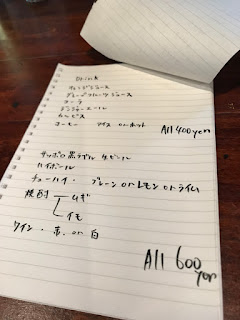 Drink
オレンジジュース
グレープフルーツジュース
コーラ
ジンジャーエール
カルピス
コーヒー アイス or ホット
All 400 yen
サッポロ黒ラベル 生ビール
ハイボール
チューハイ・プレーン or レモン or ライム
焼酎 ムギ
イモ
ワイン・赤 or 白
All 600 yen